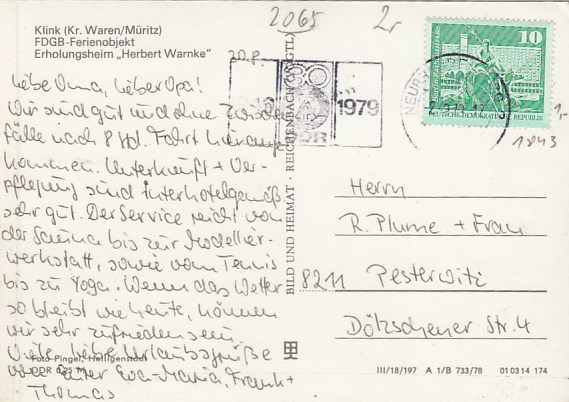 Klink (Kr. Waren/Müritz)
FDGB-Ferienobjekt
Erholungsheim „Herbert Warnke"
2065
2r
20.8.
Liebe Oma, lieber Opa!
Wir sind gut und ohne Zwischen
fälle nach 8 Std. Fahrt hier ange
kommen. Unterkunft + Ver-
pflegung sind interhotelgemäß,
sehr gut. Der Service reicht von
der Sauna bis zur Modellier-
werkstatt, sowie vom Tennis
bis zu Yoga. Wenn das Wetter
so bleibt wie heute, können
wir sehr zufrieden sein.
Viele liebe Urlaubsgrüße
von Eurer Eva-Maria, Frank +
Thomas
Foto Pingel, Heiligenstadt
DDR 0,25 M
BILD UND HEIMAT · REICHENBACH (VOGTL)
30
1979
DDR
10
DEUTSCHE DEMOKRATISCHE REPUBLIK
1,-
1843
Herrn
R. Plume + Frau
8211 Pesterwitz
Dölzschener Str. 4
III/18/197 A 1/B 733/78 01 03 14 174